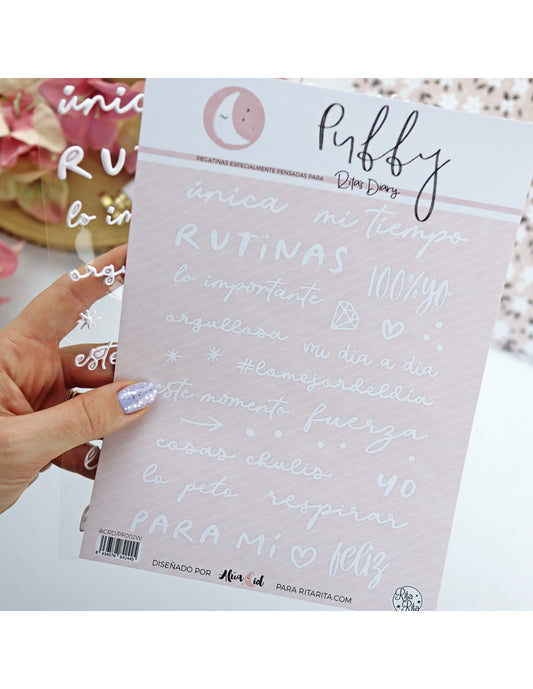 Puffy
PEGATINAS ESPECIALMENTE PENSADAS PARA
Ritas Diary
única mi tiempo
RUTINAS
lo importante 100%yo
orgullosa mi dia a dia
#lomejordeldía
este momento fuerza
cosas chulis yo
lo peto respirar
PARA MÍ feliz
ACRD/PF002W
DISEÑADO POR
PARA RITARITA.COM
Rita
Rita
única
RUT
lo im
orgu
este